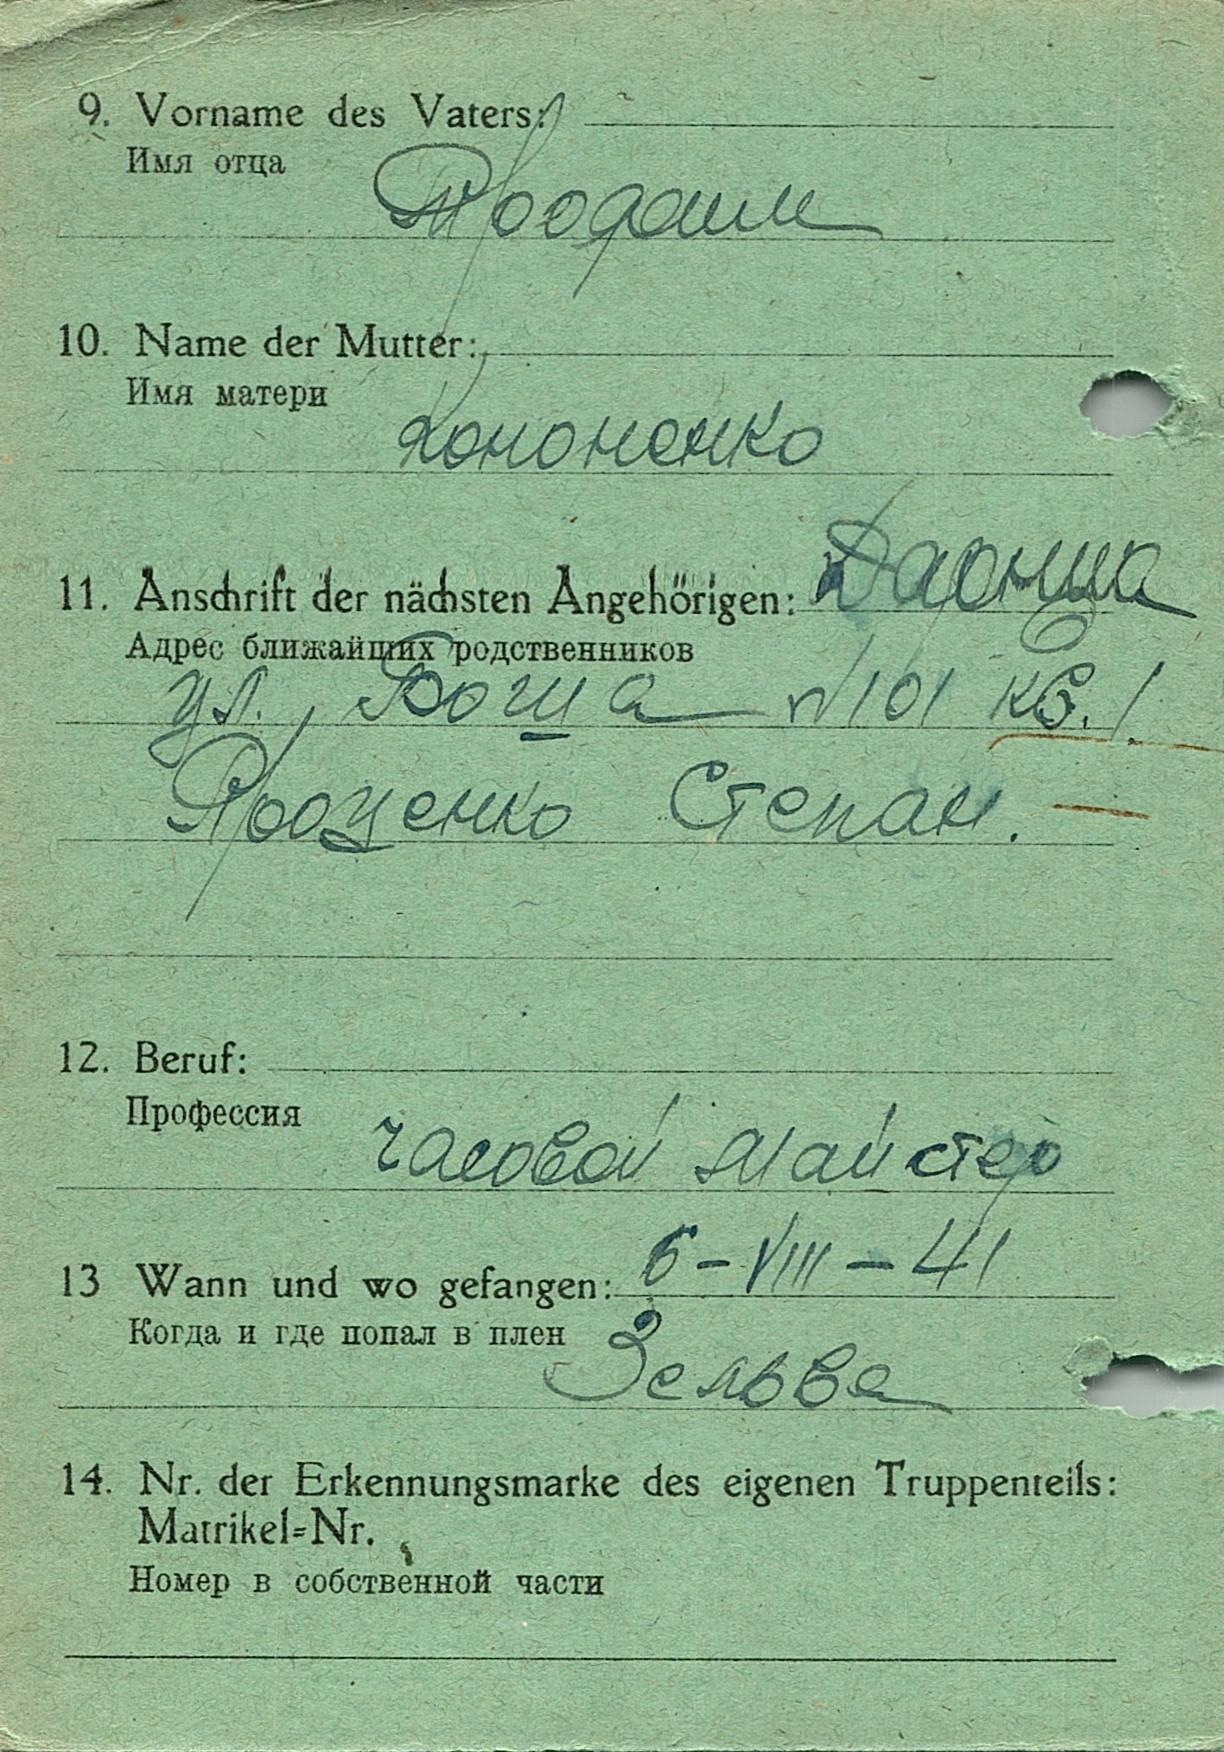 9. Vorname des Vaters:
Имя отца
10. Name der Mutter:
Имя матери
Кононенко
11. Anschrift der nächsten Angehörigen: Дарница
Адрес ближайших родственников
ул. Боша № 101 кв. 1
Проценко Степан.
12. Beruf:
Профессия
часовой майстер
13 Wann und wo gefangen: 6-VIII-41
Когда и где попал в плен
Зельва
14. Nr. der Erkennungsmarke des eigenen Truppenteils:
Matrikel=Nr.
Номер в собственной части